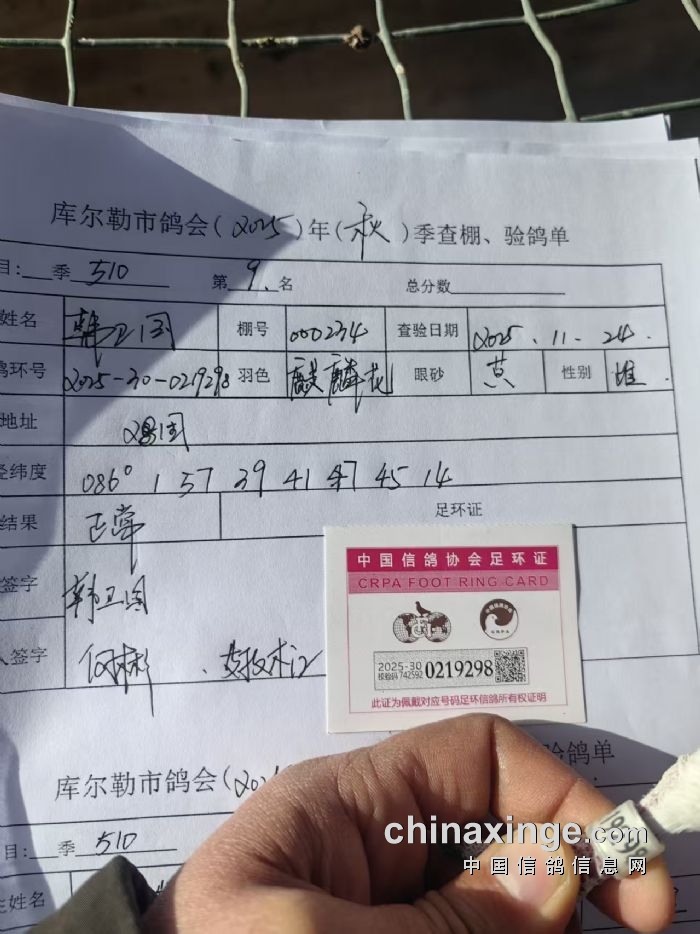 库尔勒市鸽会(2025)年(秋)季查棚、验鸽单
目:___季 510 第 9. 名 总分数
姓名 韩卫国 棚号 000234 查验日期 2025.11.24.
鸽环号 2025-30-0219298 羽色 麒麟花 眼砂 黄 性别 雄.
地址
经纬度 086° 1 57 39 41 47 45 14
结果 正常 足环证
签字 韩卫国
人签字
中国信鸽协会足环证
CRPA FOOT RING CARD
2025-30
校验码 742592
0219298
此证为佩戴对应号码足环信鸽所有权证明
库尔勒市鸽会(202 验鸽单
目:___季 510
姓名
chinaxinge.com
中国信鸽信息网